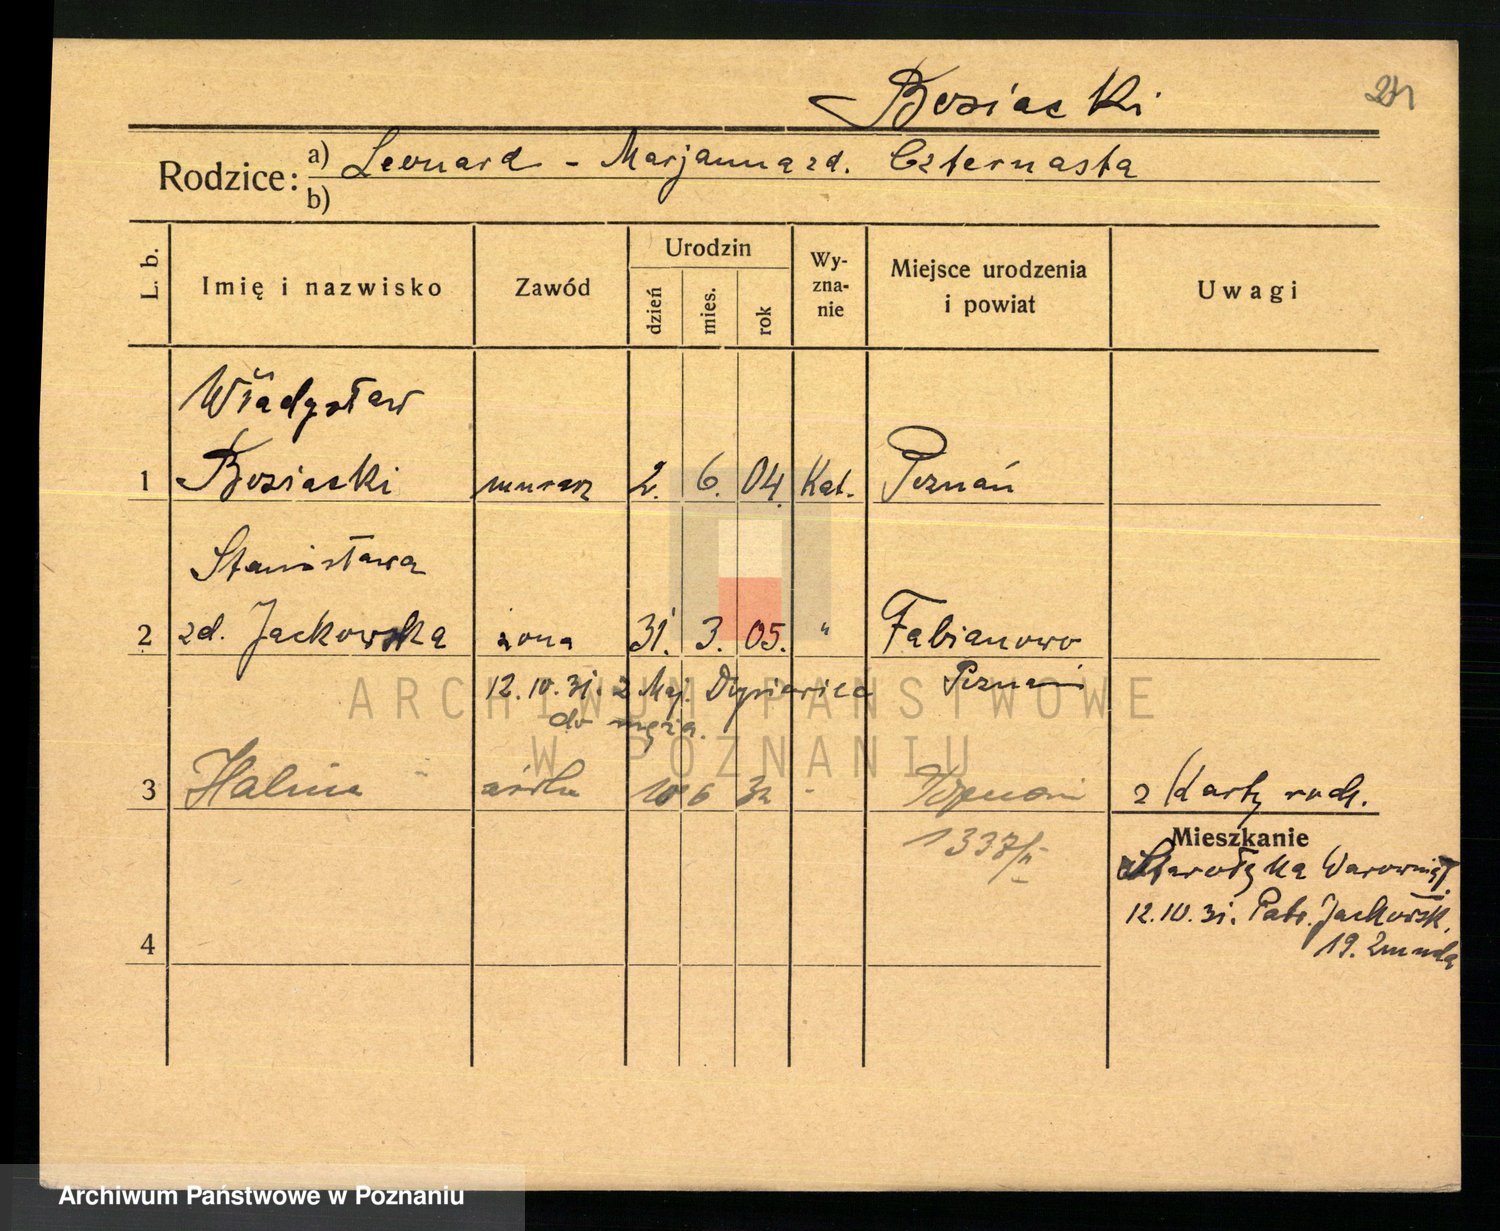 Bosiacki
Rodzice: a) Leonard - Marjanna zd. Czternasta
b)
L. b.
Imię i nazwisko
Zawód
Urodzin
dzień
mies.
rok
Wy-
zna-
nie
Miejsce urodzenia
i powiat
Uwagi
Władysław
1 Bosiacki murarz 2. 6. 04. Kat. Poznań
Stanisława
2 zd. Jackowska żona 31. 3. 05. " Fabianowo
12.10.31. z Maj. Poznań
do męża.
3 Halina córka 10 6 32 - Poznań
z Karty rodz.
1337/II
Mieszkanie
Starołęka
12.10.31. Jackowsk.
19.
4
ARCHIWUM PAŃSTWOWE
W POZNANIU
Archiwum Państwowe w Poznaniu